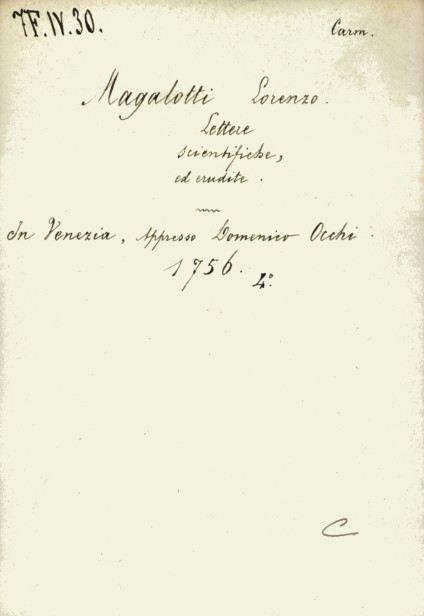 7F.IV.30.
Carm.
Magalotti Lorenzo.
Lettere
scientifiche,
ed erudite.
In Venezia, Appresso Domenico Occhi.
1756.
4.°
C